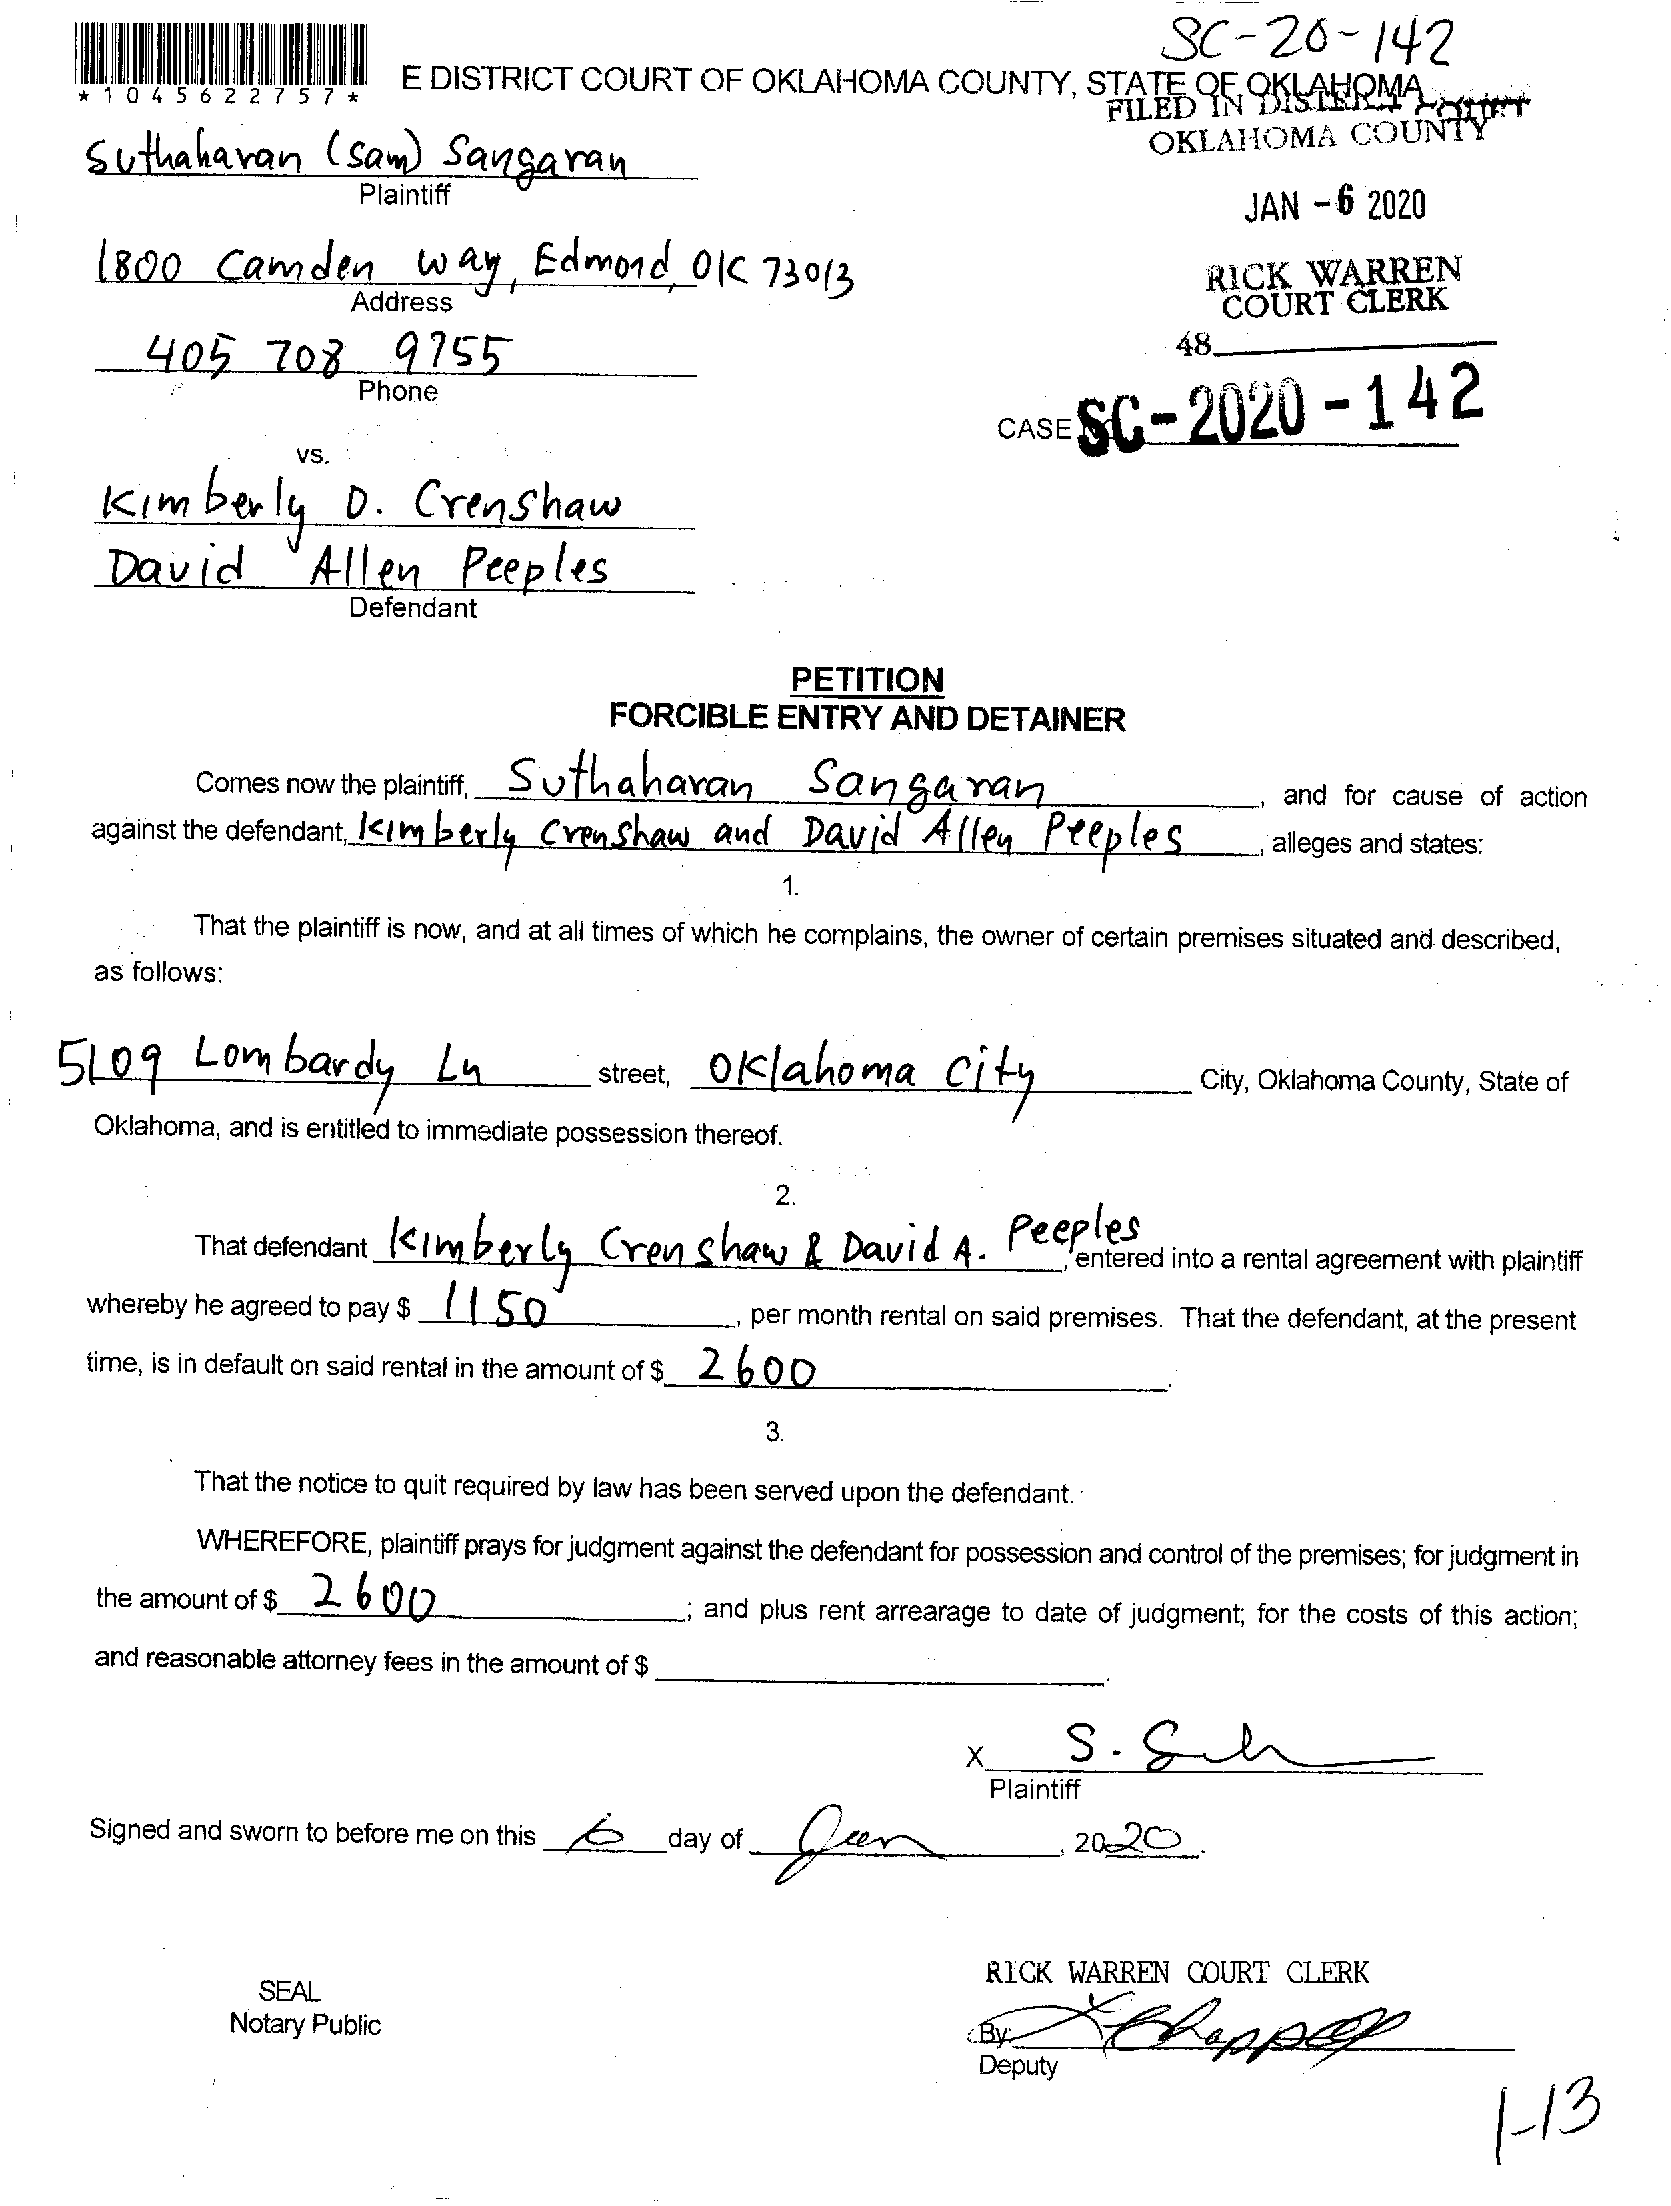 SC-20-142
E DISTRICT COURT OF OKLAHOMA COUNTY, STATE OF OKLAHOMA
*1045622757*
FILED IN DISTRICT COURT
OKLAHOMA COUNTY
Suthaharan (Sam) Sangaran
Plaintiff
JAN -6 2020
1800 Camden Way, Edmond, OK 73013
Address
RICK WARREN
COURT CLERK
405 708 9755
Phone
48
CASE SC-2020-142
vs.
Kimberly D. Crenshaw
David Allen Peeples
Defendant
PETITION
FORCIBLE ENTRY AND DETAINER
Comes now the plaintiff, Suthaharan Sangaran, and for cause of action
against the defendant, Kimberly Crenshaw and David Allen Peeples, alleges and states:
1.
That the plaintiff is now, and at all times of which he complains, the owner of certain premises situated and described,
as follows:
5109 Lombardy Ln street, Oklahoma City City, Oklahoma County, State of
Oklahoma, and is entitled to immediate possession thereof.
2.
That defendant Kimberly Crenshaw & David A. Peeples, entered into a rental agreement with plaintiff
whereby he agreed to pay $ 1150, per month rental on said premises. That the defendant, at the present
time, is in default on said rental in the amount of $ 2600.
3.
That the notice to quit required by law has been served upon the defendant.
WHEREFORE, plaintiff prays for judgment against the defendant for possession and control of the premises; for judgment in
the amount of $ 2600; and plus rent arrearage to date of judgment; for the costs of this action;
and reasonable attorney fees in the amount of $
X S.
Plaintiff
Signed and sworn to before me on this 6 day of Jan, 2020.
RICK WARREN COURT CLERK
SEAL
Notary Public
By:
Deputy
1-13